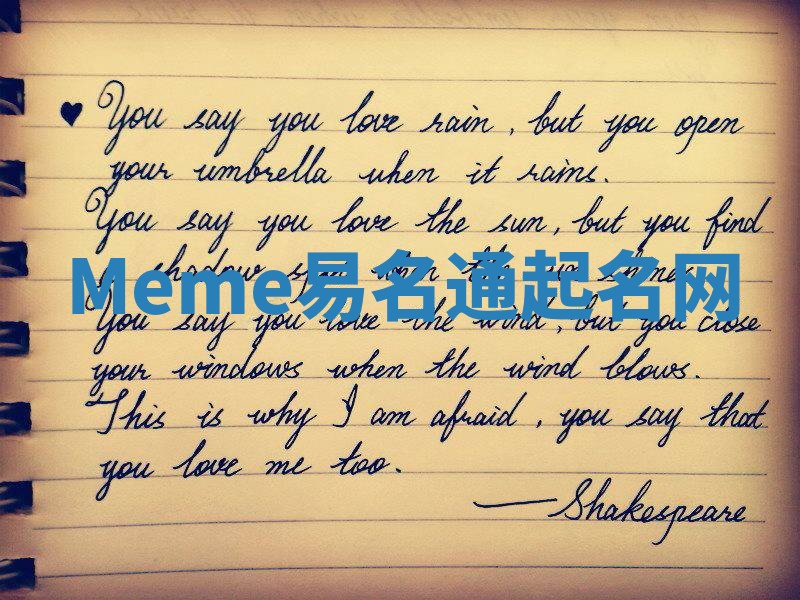 ♥ You say you love rain, but you open
your umbrella when it rains.
You say you love the sun, but you find
a shadow spot when the sun shines.
Meme易名通起名网
You say you love the wind, but you close
your windows when the wind blows.
This is why I am afraid, you say that
you love me too.
—Shakespeare